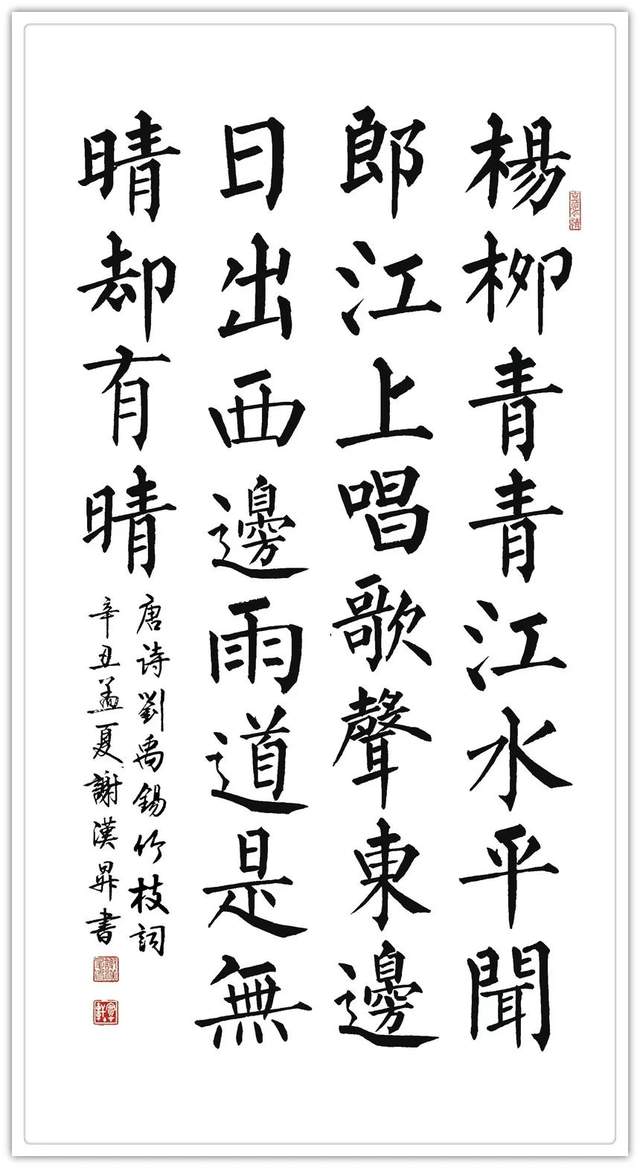 楊柳青青江水平聞
郎江上唱歌聲東邊
日出西邊雨道是無
晴却有晴
唐詩劉禹錫竹枝詞
辛丑孟夏謝漢昇書